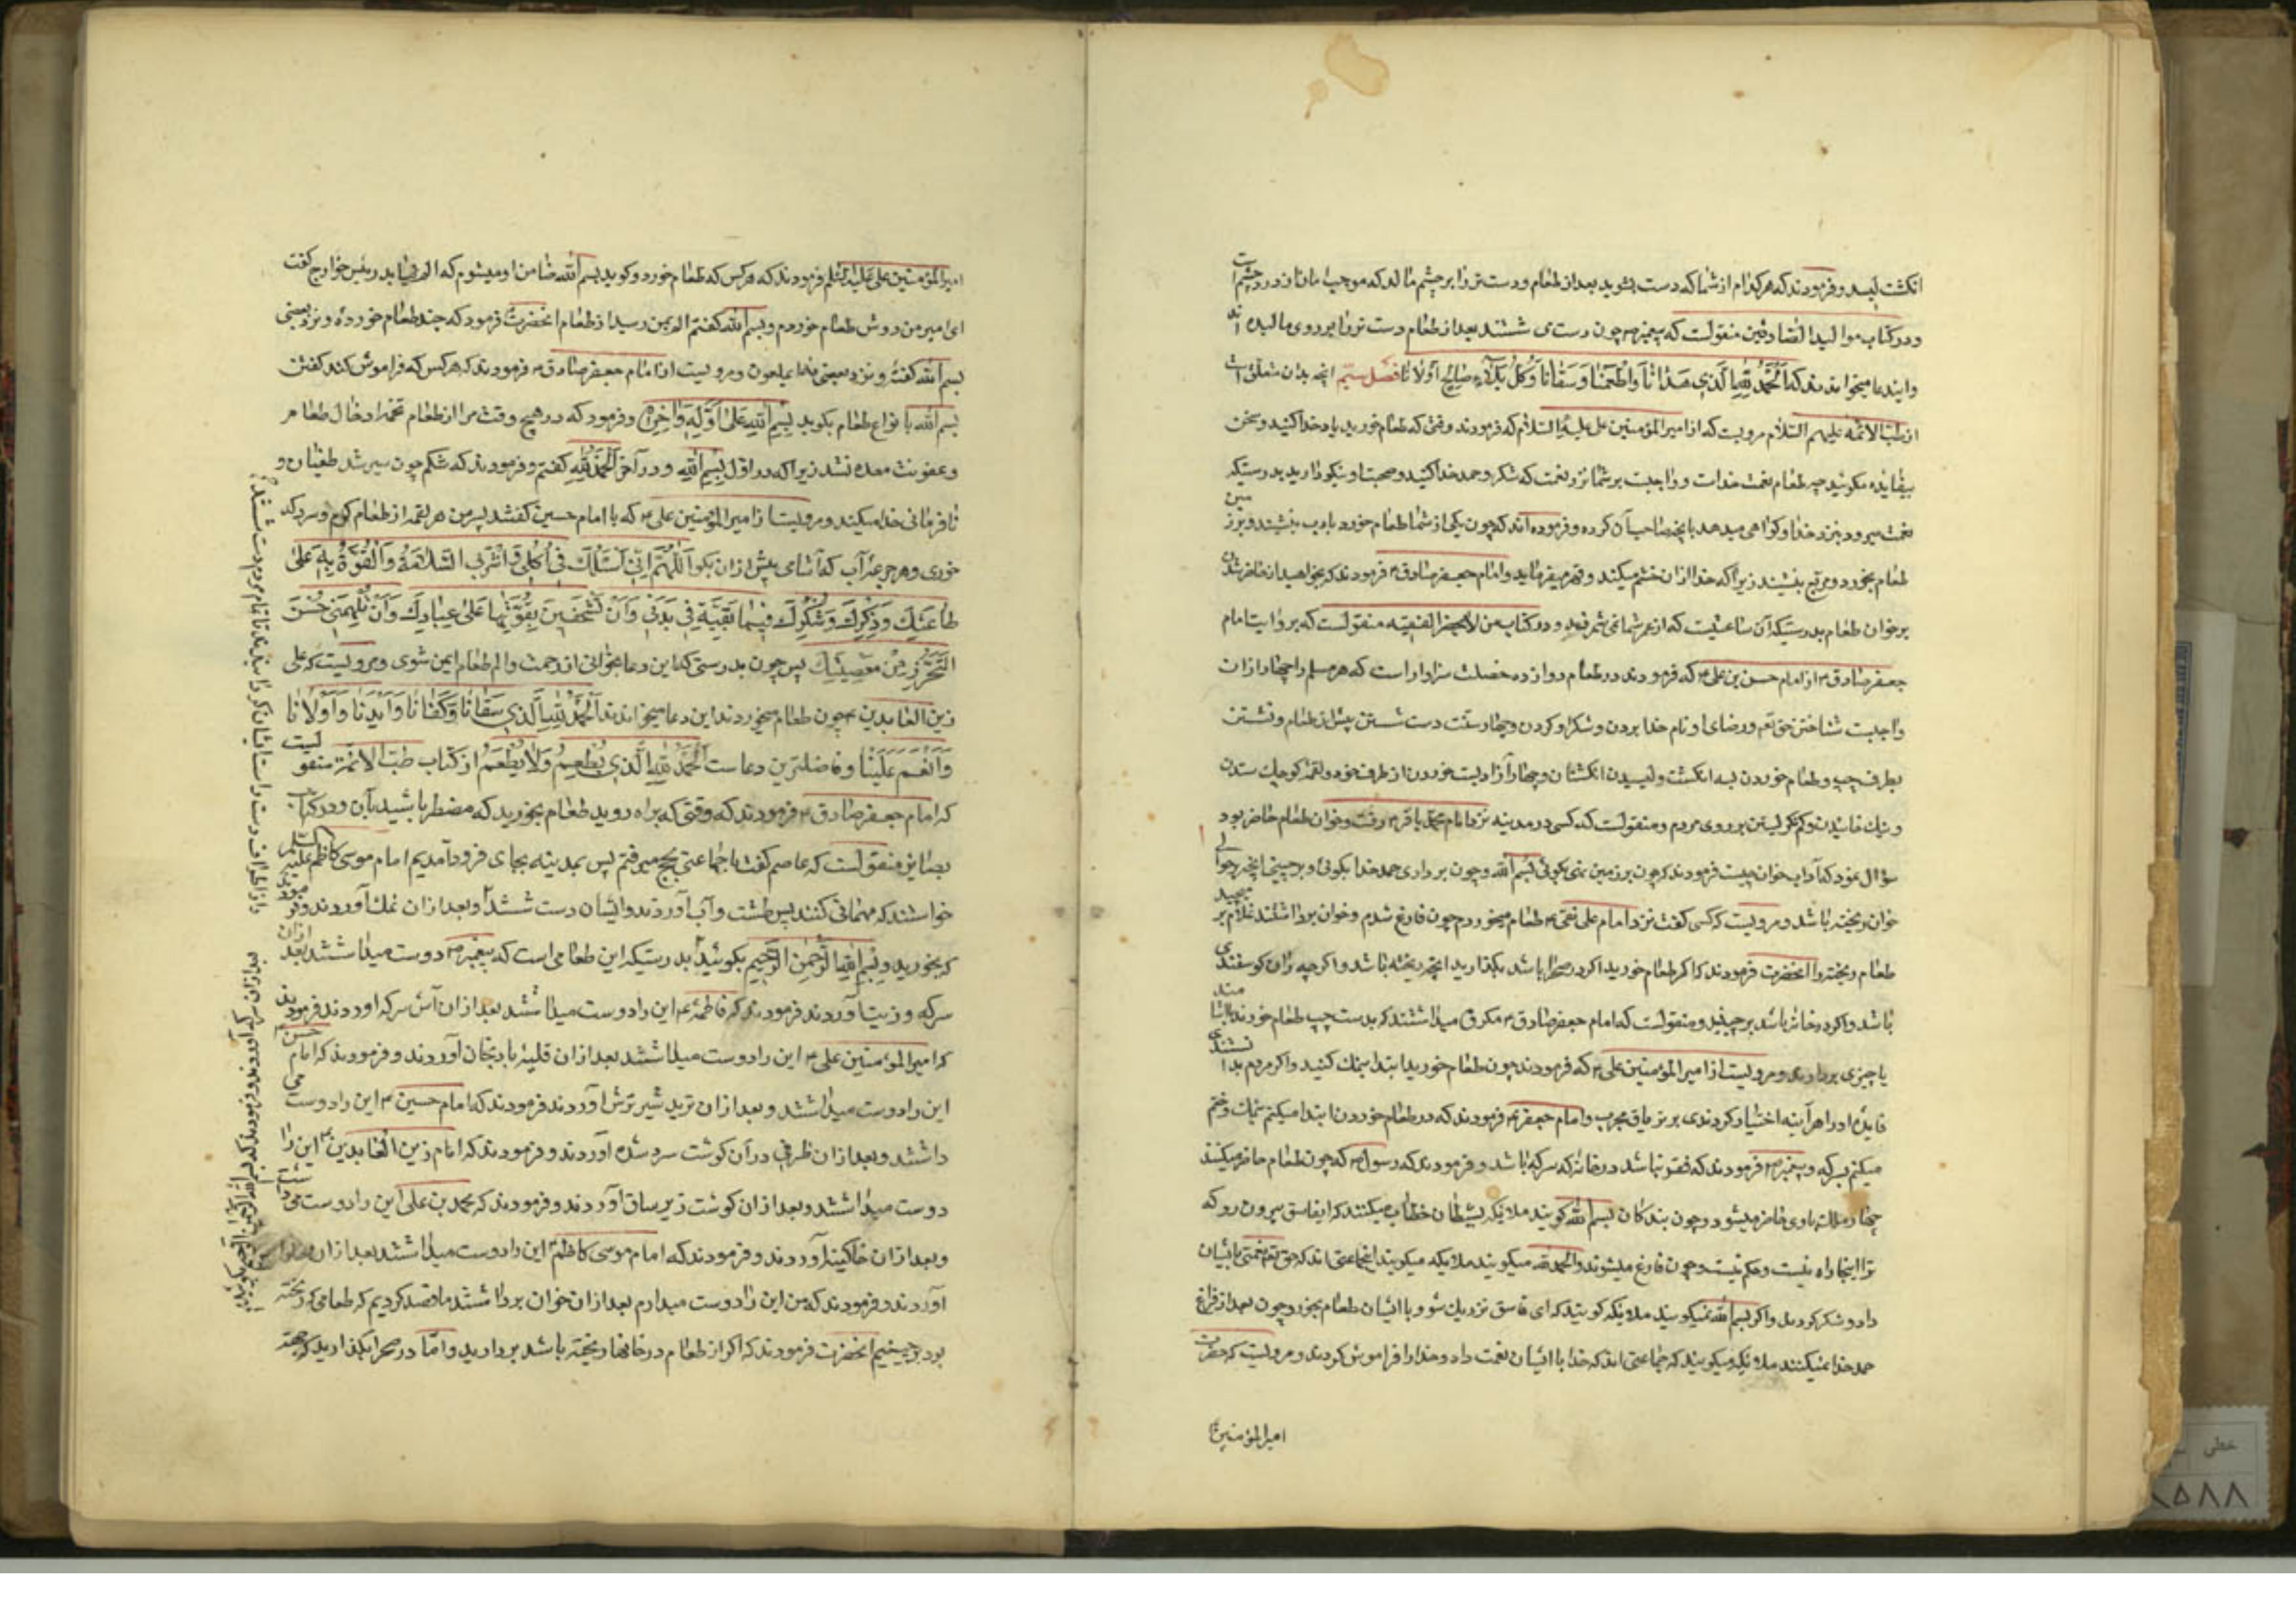 انکشت لیسد و فرمودند که هر کدام از شما که دست بشوید بعد از طعام و دست تر را بر چشم مالد که موجب امان از درد چشم است
و در کتاب موالید الصادقین منقولست که پیغمبر ص چون دست می شستند بعد از طعام دست تر را بر روی مالیده اند
و ایندعا میخواندند که اَلْحَمْدُ لِلّٰهِ الَّذِی هَدَانَا وَاَطْعَمَنَا وَسَقَانَا وَكُلَّ بَلَاءٍ صَالِحٍ اَوْلَانَا فصل سیّم انچه بدان متعلق است
از طبّ الائمّه علیهم السّلام مرویست که از امیر المؤمنین علی علیه السّلام که فرمودند وقتی که طعام خورید یاد خدا کنید و سخن
بیفایده مکوئید چه طعام نعمت خداست و واجبست بر شما نزد نعمت که شکر و حمد خدا کنید و صحبت او نیکو دارید بدرستیکه
نعمت میرود بنزد خدا و کواهی میدهد بانچه صاحب آن کرده و فرموده اند که چون یکی از شما طعام خورد بادب بنشیند و بر زمین
طعام بخورد و مربع ننشیند زیرا که خدا ازان خشم میکند و قهر میفرماید و امام جعفر صادق ع فرمودند که بخواهید از حاضر شدن
بر خوان طعام بدرستیکه آن ساعتیست که از عمر شما نمی شمرند و در کتاب من لا یحضر الفقیه منقولست که بروایت امام
جعفر صادق ع از امام حسن بن علی ع که فرمودند در طعام دوازده خصلت سزاوار است که هر مسلم را چهار ازان
واجبست شناختن حق تع و رضای او و نام خدا بردن و شکر او کردن و چهار سنّت دست شستن پیش از طعام و نشستن
بطرف چپ و طعام خوردن بسه انکشت و لیسیدن انکشتان و چهار آزادبست خوردن از طرف خود و لقمه کوچک ستدن
و نیک خائیدن و کم نکریستن بر روی مردم و منقولست که کسی در مدینه نزد امام محمّد باقر ع رفت و خوان طعام حاضر بود
سؤال نمود که آداب خوان چیست فرمودند که چون بر زمین نهی بکوئی بسم اللّه و چون برداری حمد خدا بکوئی و برچینی انچه بر حوالی
خوان ریخته باشد و مرویست که کسی کفت نزد امام علی نقی ع طعام میخوردم چون فارغ شدم و خوان برداشتند غلام بر میچید
طعام ریخته را انحضرت فرمودند که اکر طعام خورید اکر در صحرا باشد بکذارید انچه ریخته باشد و اکرچه ران کوسفندی
باشد و اکر در خانه باشد برچینید و منقولست که امام جعفر صادق ع مکروه میداشتند که بدست چپ طعام خورند یا بیاشامند
یا چیزی بردارند و مرویست از امیر المؤمنین علی ع که فرمودند چون طعام خورید ابتدا بنمک کنید و اکر مردم بدانستندی
فایدۀ او را هر آینه اختیار کردندی بر تریاق مجرب و امام جعفر ع فرمودند که در طعام خوردن ابتدا میکنم بنمک و ختم
میکنم بسرکه و پیغمبر ص فرمودند که فقر نباشد در خانۀ که سرکه باشد و فرمودند که رسول ص که چون طعام حاضر میکنند
چهار ملک باوی حاضر میشود و چون بندکان بسم اللّه کویند ملایکه بشیطان خطاب میکنند که ایفاسق بیرون رو که
ترا اینجا راه نیست و حکم نیست و چون فارغ میشوند و الحمد للّه میکویند ملایکه میکویند اینجماعتی اند که حق تع نعمتی بایشان
داد و شکر کردند و اکر بسم اللّه نمیکویند ملایکه کویند که ای فاسق نزدیک شو و با ایشان طعام بخور و چون بعد از فراغ
حمد خدا نمیکنند ملایکه میکویند که جماعتی اند که خدا با ایشان نعمت داد و خدا را فراموش کردند و مرویست که حضرت
امیرالمؤمنین
امیر المؤمنین علی علیه السّلم فرمودند که هرکس که طعام خورد و کوید بسم اللّه ضامن او میشوم که الم نیابد رئیس خوارج کفت
ای امیر من دوش طعام خوردم و بسم اللّه کفتم الم بمن رسید از طعام انحضرت فرمود که چند طعام خوردۀ و نزد بعضی
بسم اللّه کفتۀ و نزد بعضی نه ای ملعون و مرویست از امام جعفر صادق ع فرمودند که هرکس که فراموش کند کفتن
بسم اللّه با نواع طعام بکوید بِسْمِ اللّٰهِ عَلٰی اَوَّلِهِ وَ اٰخِرِهِ و فرمود که در هیچ وقت مرا از طعام تخمه از خال طعام
و عفونت معده نشد زیرا که در اوّل بِسْمِ اللّٰهِ و در آخر اَلْحَمْدُ لِلّٰهِ کفتم و فرمودند که شکم چون سیر شد طغیان و
نافرمانی خدا میکند و مرویست از امیر المؤمنین علی ع که با امام حسین کفتند پسر من هر لقمه از طعام کرم و سرد که
خوری و هر جرعه آب که آشامی پیش ازان بکو اَللّٰهُمَّ اِنِّی اَسْئَلُكَ فِی اَكْلِی وَ شُرْبِی السَّلَامَةَ وَ الْقُوَّةَ بِهِ عَلٰی
طَاعَتِكَ وَ ذِكْرِكَ وَ شُكْرِكَ فِیمَا بَقَّیْتَهُ فِی بَدَنِی وَ اَنْ تُشَجِّعَنِی بِقُوَّتِهَا عَلٰی عِبَادَتِكَ وَ اَنْ تُلْهِمَنِی حُسْنَ
التَّحَرُّزِ مِنْ مَعْصِیَتِكَ پس چون بدرستی که این دعا بخوانی از زحمت و الم طعام ایمن شوی و مرویست که علی
زین العابدین ع چون طعام میخوردند این دعا میخواندند اَلْحَمْدُ لِلّٰهِ الَّذِی سَقَانَا وَ كَفَانَا وَ اَیَّدَنَا وَ آوَانَا
وَ اَنْعَمَ عَلَیْنَا و فاضلترین دعاست اَلْحَمْدُ لِلّٰهِ الَّذِی یُطْعِمُ وَ لَا یُطْعَمُ از کتاب طبّ الائمّة منقولست
که امام جعفر صادق ع فرمودند که وقتی که براه روید طعام بخورید که مضطر باشید بآن و در کتاب
بصایر منقولست که عاصم کفت با جماعتی بحج میرفتم پس بمدینه بجای فرود آمدیم امام موسی کاظم علیه السلم
خواستند که مهمانی کنند پس طشت و آب آوردند و ایشان دست شستند و بعد ازان نمک آوردند و فرمودند
که بخورید و بِسْمِ اللّٰهِ الرَّحْمٰنِ الرَّحِیمِ بکوئید بدرستیکه این طعامی است که پیغمبر ص دوست میداشتند بعد ازان
سرکه و زیت آوردند فرمودند که فاطمه ع این را دوست میداشتند بعد ازان آش سرکه اوردند فرمودند
که امیر المؤمنین علی ع این را دوست میداشتند بعد ازان قلیۀ بادنجان آوردند و فرمودند که امام حسن ع
این را دوست میداشتند و بعد ازان ترید شیر ترش آوردند فرمودند که امام حسین ع این را دوست
داشتند و بعد ازان ظرفی در آن کوشت سرد شده آوردند و فرمودند که امام زین العابدین ع این را
دوست میداشتند و بعد ازان کوشت زیر ساق آوردند و فرمودند که محمد بن علی این را دوست
و بعد ازان خاکینه آوردند و فرمودند که امام موسی کاظم این را دوست میداشتند بعد ازان حلوا
آوردند و فرمودند که من این را دوست میدارم بعد ازان خوان برداشتند ما قصد کردیم که طعامی که ریخته
بود برچینیم انحضرت فرمودند که اکر از طعام در خانها ریخته باشد بردارید و امّا در صحرا بکذارید که